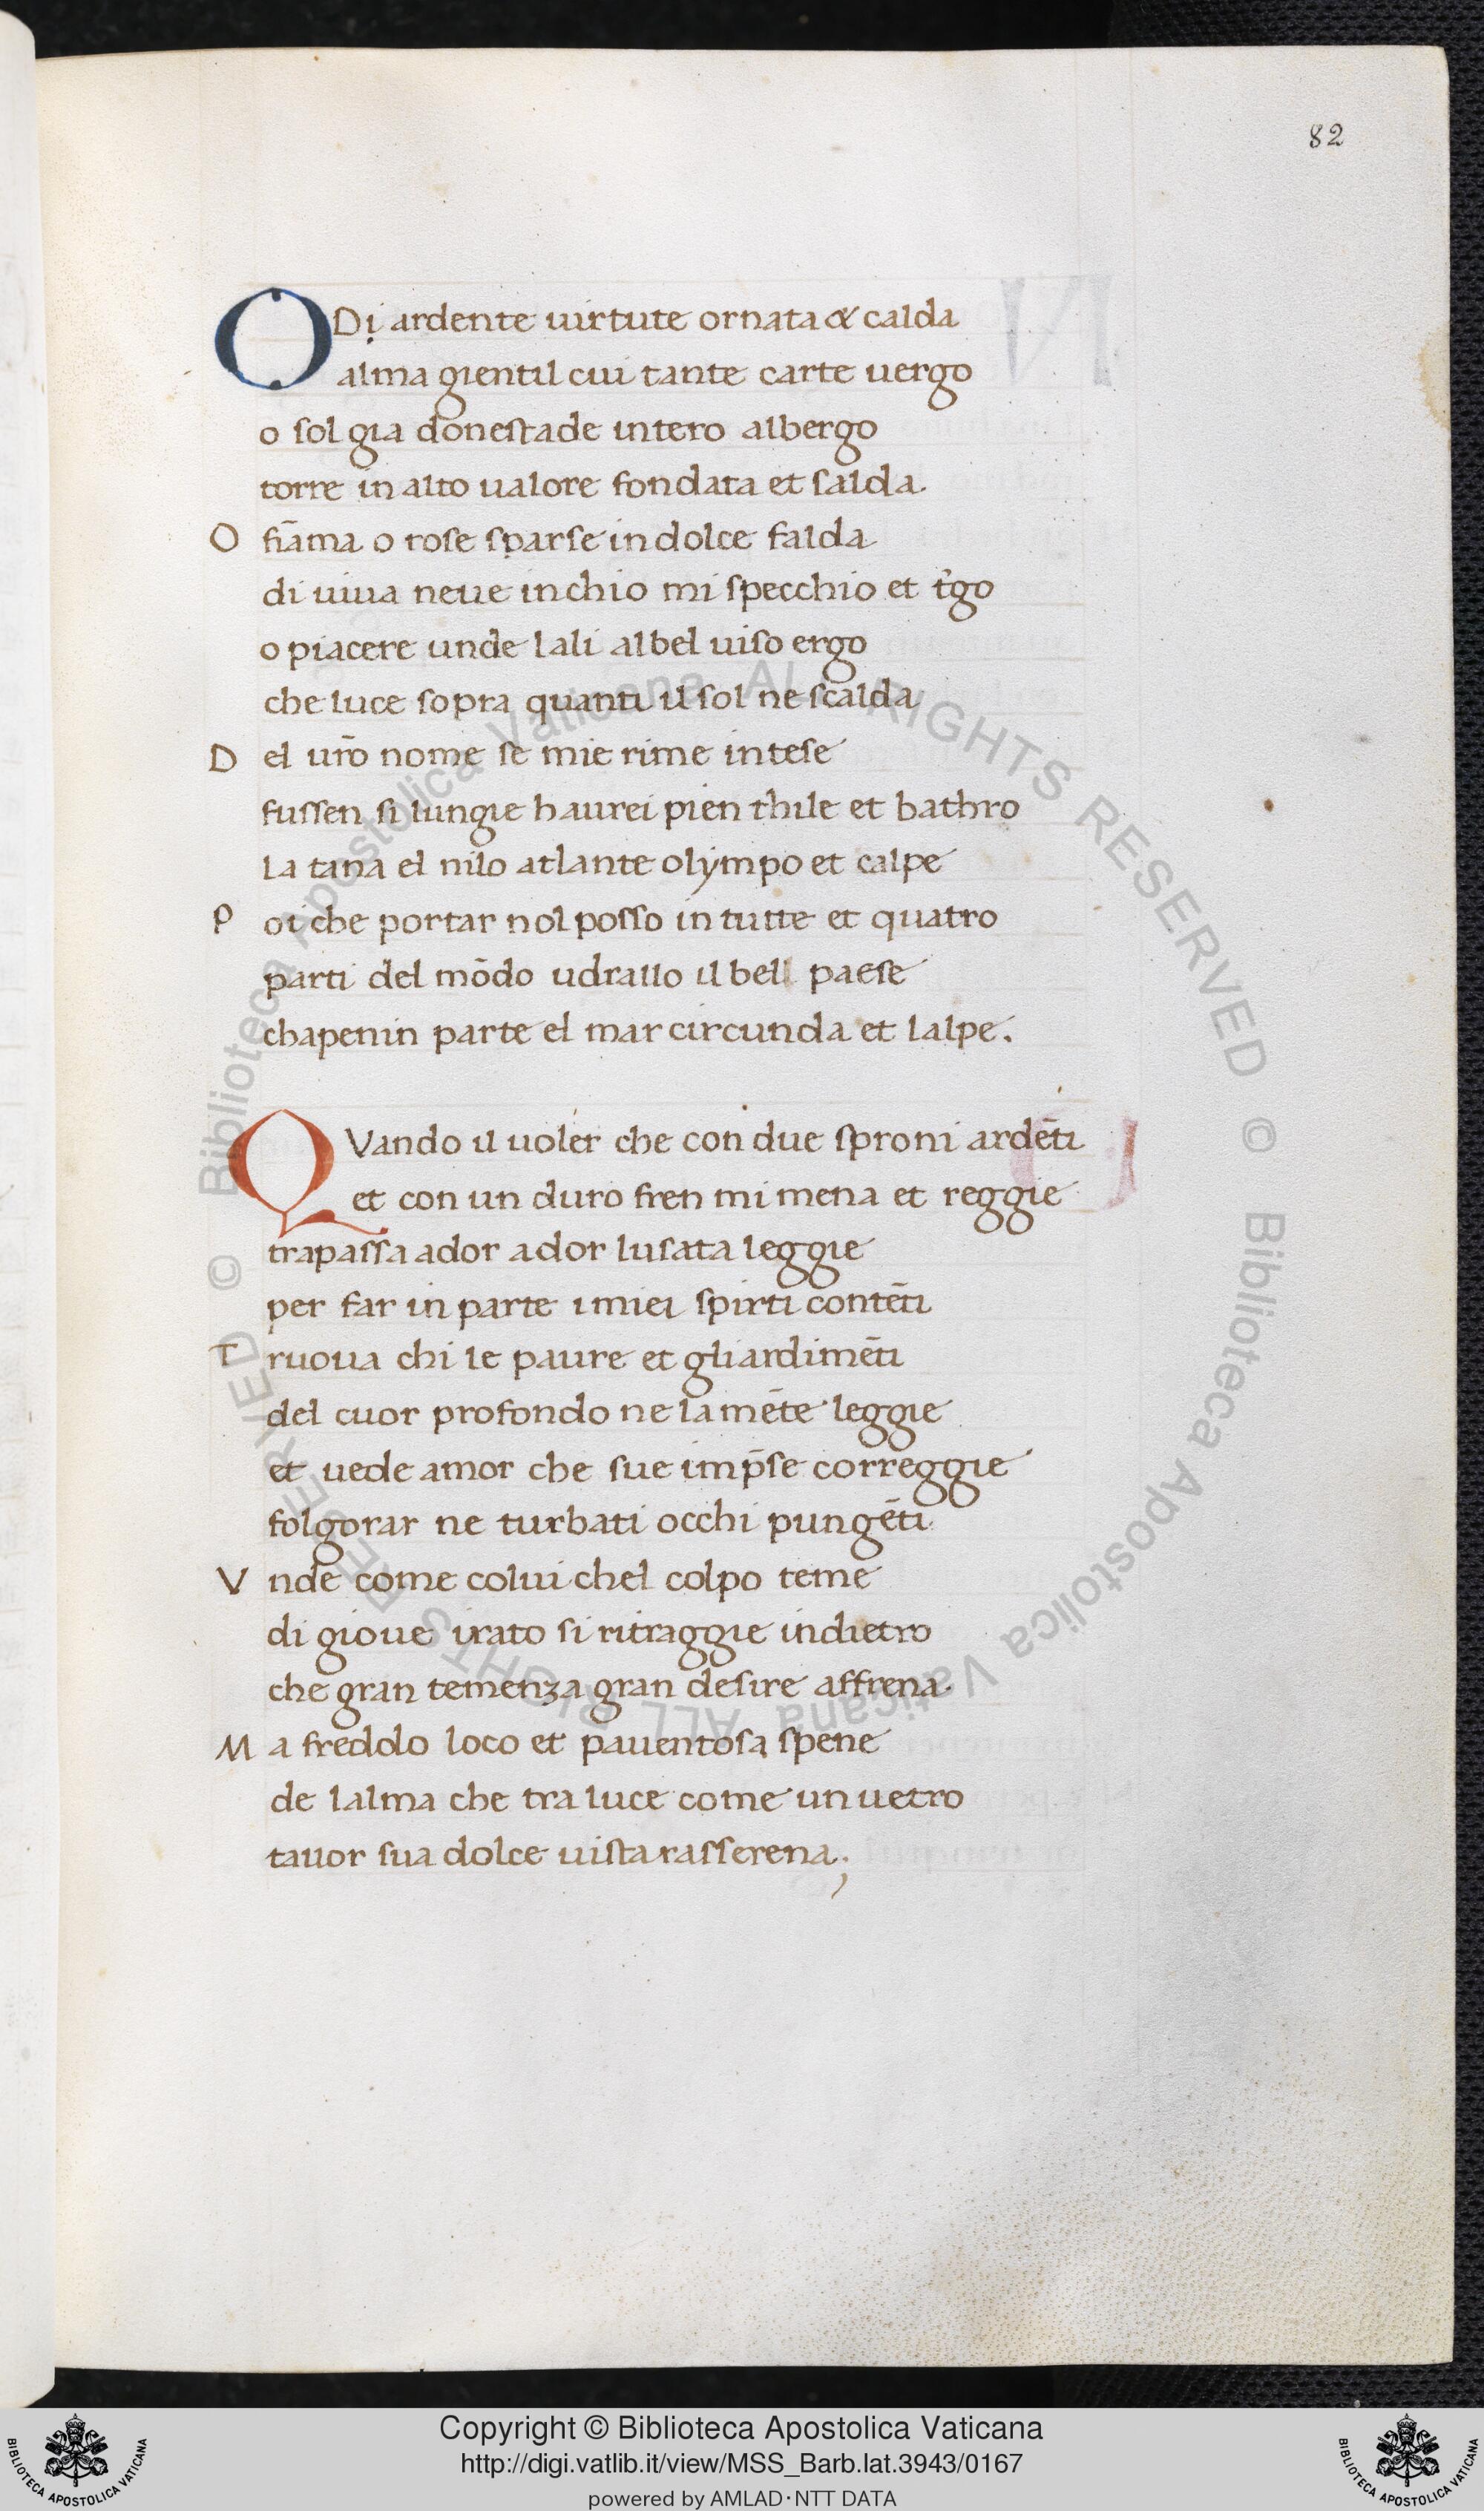 82
O Di ardente uirtute ornata & calda
alma gientil cui tante carte uergo
o sol gia donestade intero albergo
torre in alto ualore fondata et salda.
O fiāma o rose sparse in dolce falda
di uiua neue in chio mi specchio et t̓go
o piacere unde lali al bel uiso ergo
che luce sopra quanti il sol ne scalda
D el ur̄o nome se mie rime intese
fussen si lungie haurei pien thile et bathro
La tana el nilo atlante olympo et calpe
P oi che portar nol posso in tutte et quatro
parti del mōdo udrallo il bell paese
chapenin parte el mar circunda et lalpe.
Q Vando il uoler che con due sproni ardēti
et con un duro fren mi mena et reggie
trapassa ador ador lusata leggie
per far in parte i miei spirti contēti
T ruoua chi le paure et gli ardimēti
del cuor profondo ne la mēte leggie
et uede amor che sue imp̄se correggie
folgorar ne turbati occhi pungēti
V nde come colui chel colpo teme
di gioue irato si ritraggie indietro
che gran temenza gran desire affrena.
M a freddo loco et pauentosa spene
de lalma che tra luce come un uetro
tauor sua dolce uista rasserena;
© Biblioteca Apostolica Vaticana ALL RIGHTS RESERVED © Biblioteca Apostolica Vaticana ALL RIGHTS RESERVED
Copyright © Biblioteca Apostolica Vaticana
http://digi.vatlib.it/view/MSS_Barb.lat.3943/0167
powered by AMLAD·NTT DATA
BIBLIOTECA APOSTOLICA VATICANA
BIBLIOTECA APOSTOLICA VATICANA